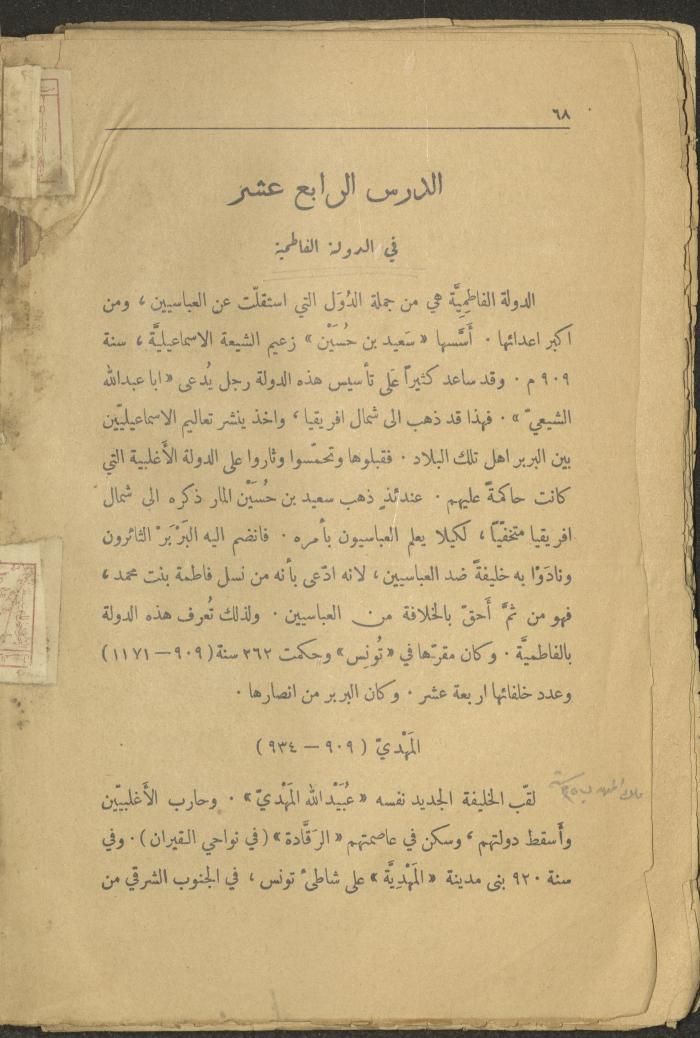 ٦٨
الدرس الرابع عشر
في الدولة الفاطمية
الدولة الفاطمِيَّة هي من جملة الدُوَل التي استقلّت عن العباسيين ، ومن
اكبر اعدائها . أَسَّسها « سَعيد بن حُسَيْن » زعيم الشيعة الاسماعيليَّة ، سنة
٩٠٩ م . وقد ساعد كثيراً عَلى تأسيس هذه الدولة رجل يُدعى « ابا عبدالله
الشيعيّ » . فهذا قد ذهب الى شمال افريقيا ، واخذ ينشر تعاليم الاسماعيليّين
بين البربر اهل تلك البلاد . فقبلوها وتحمّسوا وثاروا على الدولة الأَغلبية التي
كانت حاكمةً عليهم . عندئذٍ ذهب سعيد بن حُسَيْن المار ذكره الى شمال
افريقيا متخفّيًا ، لكيلا يعلم العباسيون بأمره . فانضم اليه البَرْبَرْ الثائرون
ونادَوْا به خليفةً ضد العباسيين ، لانه ادّعى بأنه من نسل فاطمة بنت محمد ،
فهو من ثمَّ أَحقّ بالخلافة من العباسيين . ولذلك تُعرف هذه الدولة
بالفاطميَّة . وكان مقرّها في « تُونِس » وحكمت ٢٦٢ سنة (٩٠٩ — ١١٧١)
وعدد خلفائها اربعة عشر . وكان البربر من انصارها .
المَهْديّ (٩٠٩ — ٩٣٤)
لقّب الخليفة الجديد نفسه « عُبَيْدالله المَهْديّ » . وحارب الأَغلبيّين
وأَسقط دولتهم ، وسكن في عاصمتهم « الرَقَّادة » (في نواحي القيران) . وفي
سنة ٩٢٠ بنى مدينة « المَهْدِيَّة » على شاطئ تونس ، في الجنوب الشرقي من